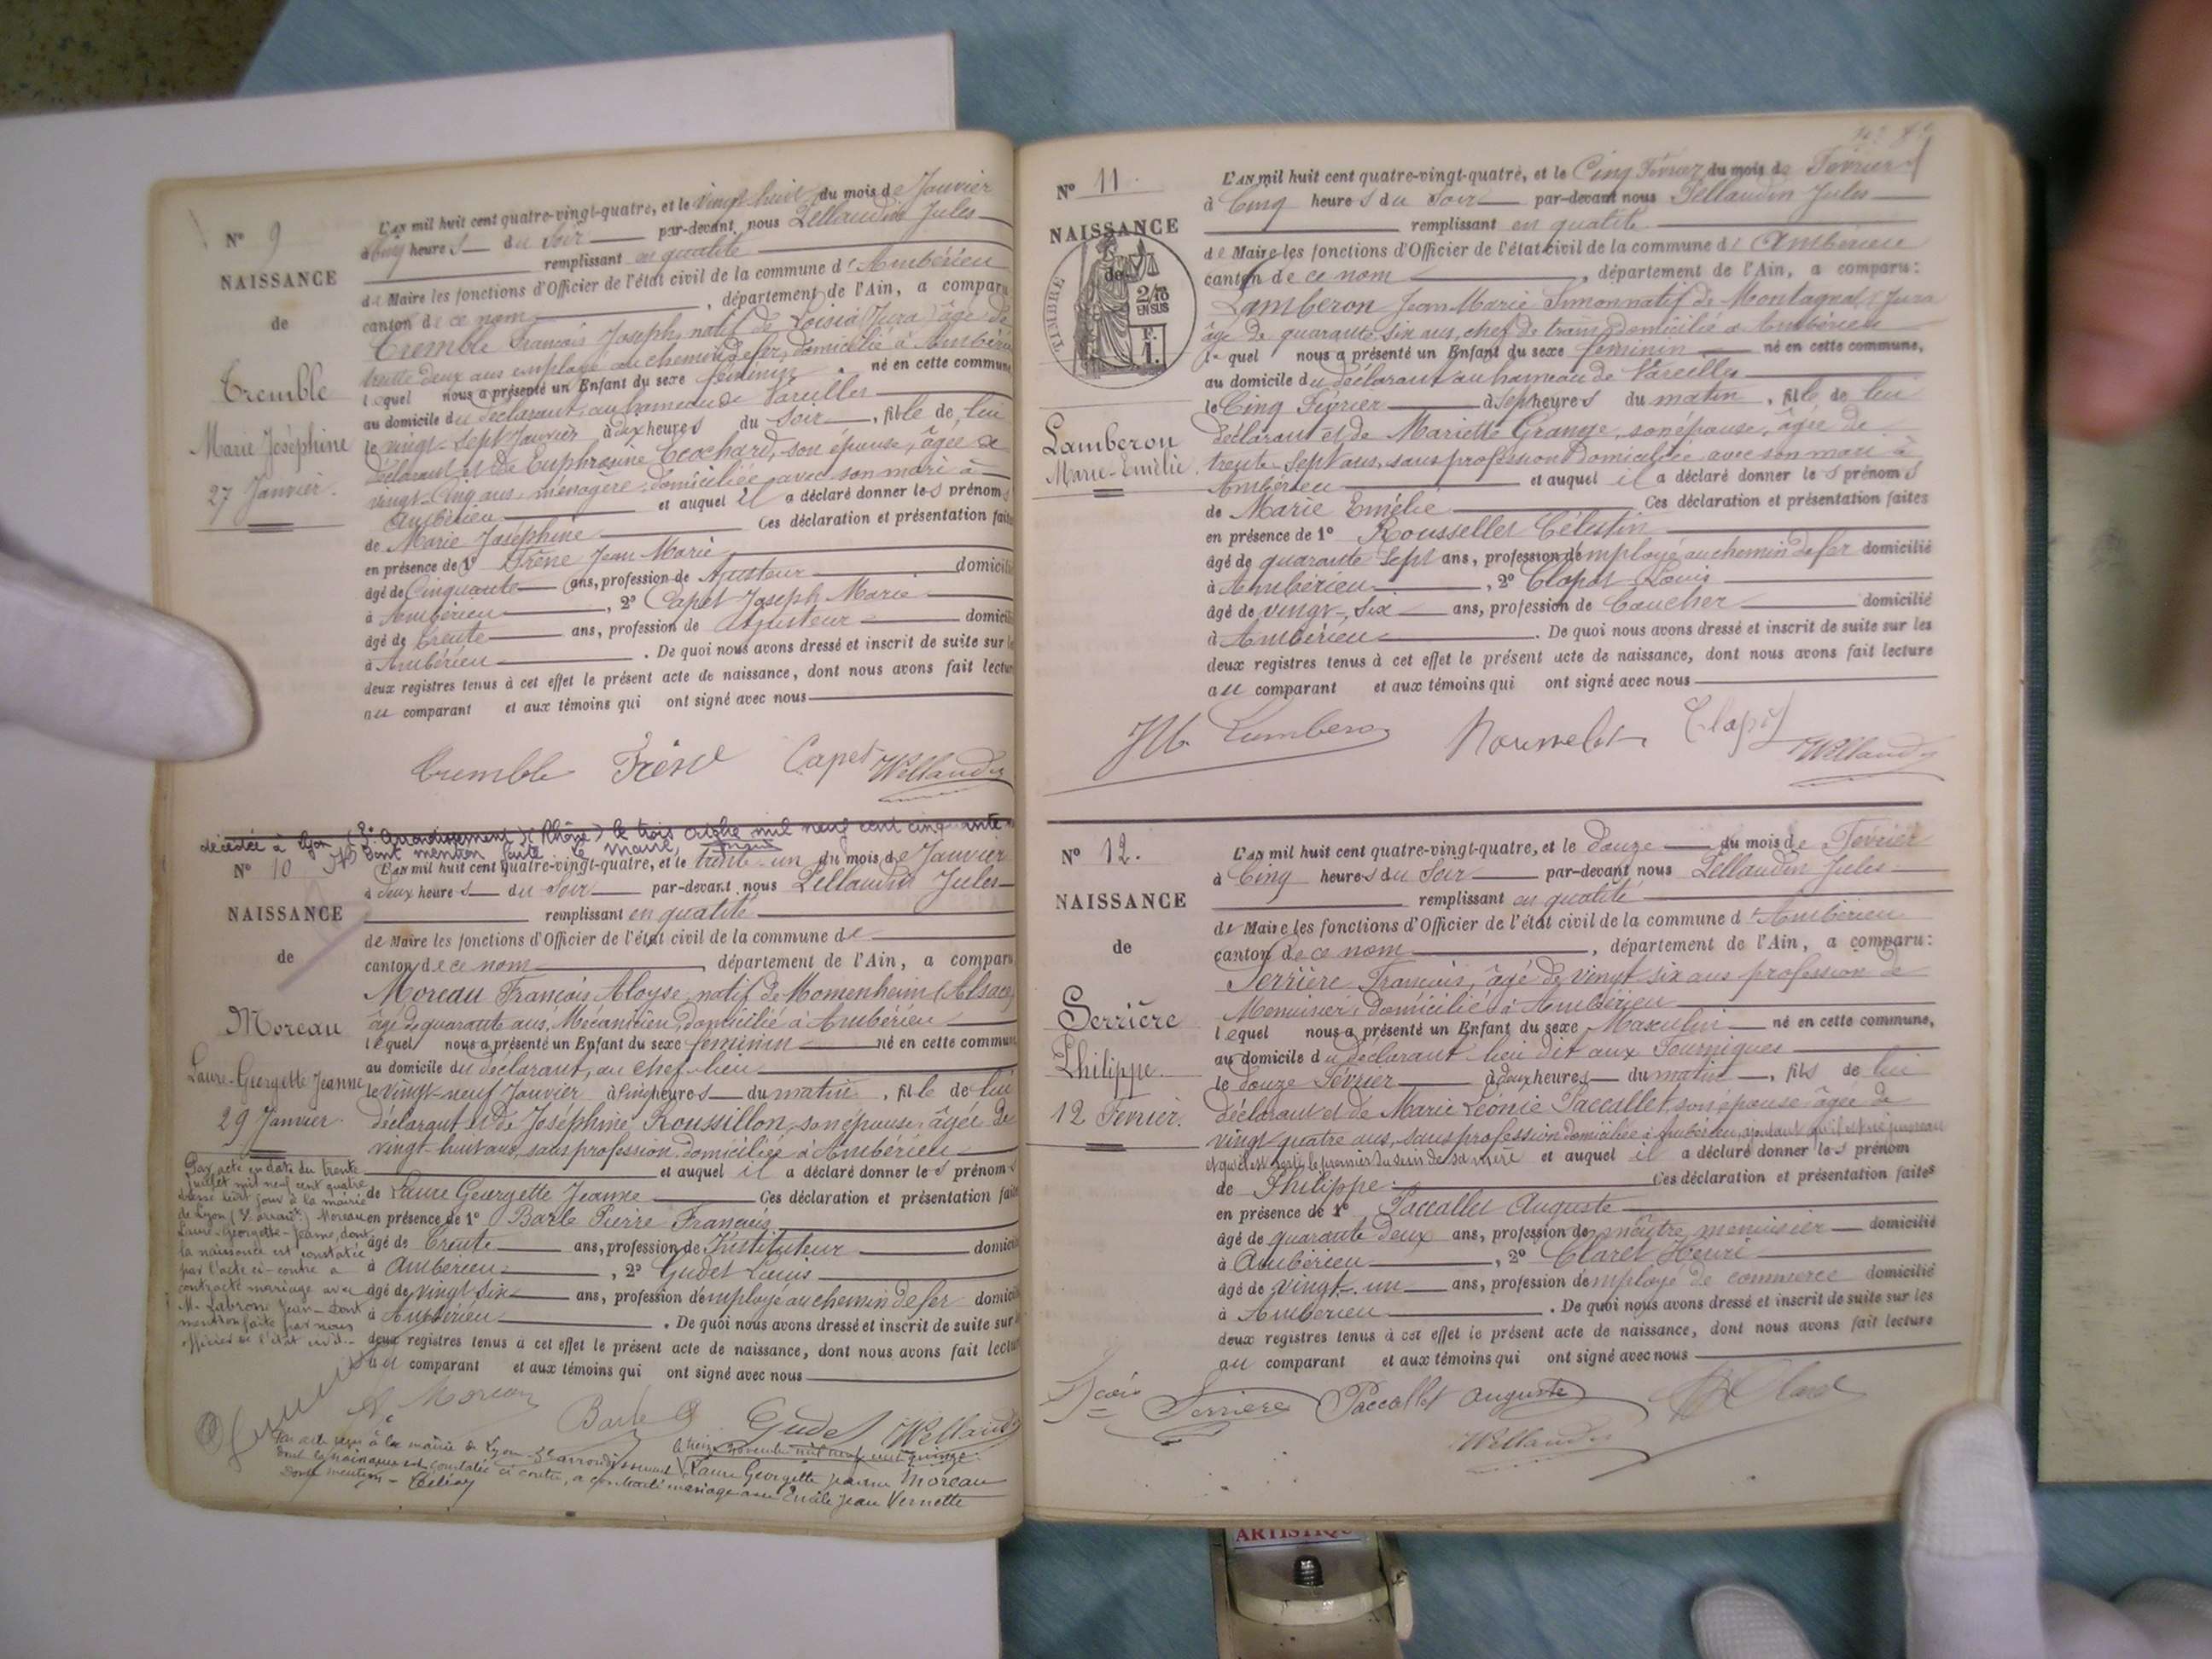 N° 9
NAISSANCE
de
Tremble
Marie Joséphine
27 Janvier.
L'AN mil huit cent quatre-vingt-quatre, et le vingt huit du mois de Janvier
à Cinq heures du Soir par-devant nous Pellaudin Jules
remplissant en qualité
de Maire les fonctions d'Officier de l'état civil de la commune d'Ambérieu
canton de ce nom, département de l'Ain, a comparu
Tremble François Joseph, natif de Loisia (Jura) âgé de
trente deux ans employé au chemin de fer, domicilié à Ambérieu
lequel nous a présenté un Enfant du sexe féminin né en cette commune
au domicile du déclarant, au hameau de Vareilles
le vingt-sept Janvier à dix heures du Soir, fille de lui
déclarant et de Euphrosine son épouse, âgée de
vingt-cinq ans, ménagère, domiciliée avec son mari à
Ambérieu et auquel il a déclaré donner les prénoms
de Marie Joséphine Ces déclaration et présentation faites
en présence de 1° Frène Jean Marie
âgé de Cinquante ans, profession de Ajusteur domicilié
à Ambérieu, 2° Capet Joseph Marie
âgé de trente ans, profession de ajusteur domicilié
à Ambérieu. De quoi nous avons dressé et inscrit de suite sur les
deux registres tenus à cet effet le présent acte de naissance, dont nous avons fait lecture
au comparant et aux témoins qui ont signé avec nous
Tremble Frène Capet
décédée à Lyon (3e Arrondissement) (Rhône) le trois octobre mil neuf cent cinquante
dont mention faite le Maire,
N° 10
NAISSANCE
de
Moreau
Laure-Georgette Jeanne
29 Janvier.
L'AN mil huit cent quatre-vingt-quatre, et le trente-un du mois de Janvier
à deux heures du Soir par-devant nous Pellaudin Jules
remplissant en qualité
de Maire les fonctions d'Officier de l'état civil de la commune de
canton de ce nom, département de l'Ain, a comparu
Moreau François Aloyse, natif de Momenheim (Alsace)
âgé de quarante ans, Mécanicien, domicilié à Ambérieu
lequel nous a présenté un Enfant du sexe féminin né en cette commune
au domicile du déclarant, au chef-lieu
le vingt-neuf Janvier à cinq heures du matin, fille de lui
déclarant et de Joséphine Roussillon, son épouse, âgée de
vingt-huit ans, sans profession, domiciliée à Ambérieu
et auquel il a déclaré donner les prénoms
de Laure Georgette Jeanne Ces déclaration et présentation faites
en présence de 1° Barle Pierre François
âgé de trente ans, profession de Instituteur domicilié
à Ambérieu, 2° Gudet Louis
âgé de vingt six ans, profession d'employé au chemin de fer domicilié
à Ambérieu. De quoi nous avons dressé et inscrit de suite sur les
deux registres tenus à cet effet le présent acte de naissance, dont nous avons fait lecture
au comparant et aux témoins qui ont signé avec nous
Par acte en date du trente
juillet mil neuf cent quatre
dressé led jour à la mairie
de Lyon (3e arrondt) Moreau
Laure-Georgette-Jeanne, dont
la naissance est constatée
par l'acte ci-contre a
contracté mariage avec
M. Labrosse Jean - Dont
mention faite par nous
officier de l'état civil.
Moreau Barle Gudet
Par acte reçu à la mairie de Lyon 3e arrondissement le treize novembre mil neuf cent quinze
dont la naissance est constatée ci contre, a contracté mariage avec Emile Jean Vernette
Laure Georgette Jeanne Moreau
Dont mention
N° 11
NAISSANCE
de
TIMBRE
2/10
EN SUS
F.
1.
Lamberon
Marie-Emélie.
L'AN mil huit cent quatre-vingt-quatre, et le Cinq Février du mois de Février
à Cinq heures du Soir par-devant nous Pellaudin Jules
remplissant en qualité
de Maire les fonctions d'Officier de l'état civil de la commune d'Ambérieu
canton de ce nom, département de l'Ain, a comparu:
Lamberon Jean-Marie Simon natif de Montagna, Jura
âgé de quarante-six ans, chef de train, domicilié à Ambérieu
lequel nous a présenté un Enfant du sexe féminin né en cette commune,
au domicile du déclarant au hameau de Vareilles
le Cinq Février à Sept heures du matin, fille de lui
déclarant et de Mariette Grange, son épouse, âgée de
trente-sept ans, sans profession domiciliée avec son mari à
Ambérieu et auquel il a déclaré donner les prénoms
de Marie Emélie Ces déclaration et présentation faites
en présence de 1° Rousselet Célestin
âgé de quarante sept ans, profession d'employé au chemin de fer domicilié
à Ambérieu, 2° Clapot Louis
âgé de vingt-six ans, profession de domicilié
à Ambérieu. De quoi nous avons dressé et inscrit de suite sur les
deux registres tenus à cet effet le présent acte de naissance, dont nous avons fait lecture
au comparant et aux témoins qui ont signé avec nous
N° 12.
NAISSANCE
de
Serrière
Philippe.
12 Février.
L'AN mil huit cent quatre-vingt-quatre, et le douze du mois de Février
à Cinq heures du Soir par-devant nous Pellaudin Jules
remplissant en qualité
de Maire les fonctions d'Officier de l'état civil de la commune d'Ambérieu
canton de ce nom, département de l'Ain, a comparu:
Serrière François, âgé de vingt six ans profession de
Menuisier, domicilié à Ambérieu
lequel nous a présenté un Enfant du sexe Masculin né en cette commune,
au domicile du déclarant lieu dit aux Fourniques
le douze Février à deux heures du matin, fils de lui
déclarant et de Marie Léonie Paccallet, son épouse âgée de
vingt quatre ans, sans profession domiciliée à Ambérieu, ajoutant qu'il est né jumeau
et qu'il est sorti le premier du sein de sa mère et auquel il a déclaré donner les prénom
de Philippe. Ces déclaration et présentation faites
en présence de 1° Paccallet Auguste
âgé de quarante deux ans, profession de maître menuisier domicilié
à Ambérieu, 2° Claret Henri
âgé de vingt-un ans, profession d'employé de commerce domicilié
à Ambérieu. De quoi nous avons dressé et inscrit de suite sur les
deux registres tenus à cet effet le présent acte de naissance, dont nous avons fait lecture
au comparant et aux témoins qui ont signé avec nous
Fçois Serrière Paccallet Auguste
ARTISTIQUE